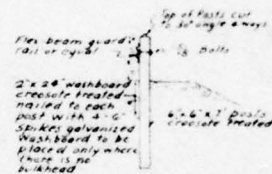 Top of Posts cut
to 30° angle 4 ways
Flex beam guard
rail or equal
5/8 Bolts
2"x 24" washboard
creosote treated
nailed to each
post with 4-6"
spikes galvanized
Washboard to be
placed only where
there is no
bulkhead
6"x6"x7' posts
creosote treated